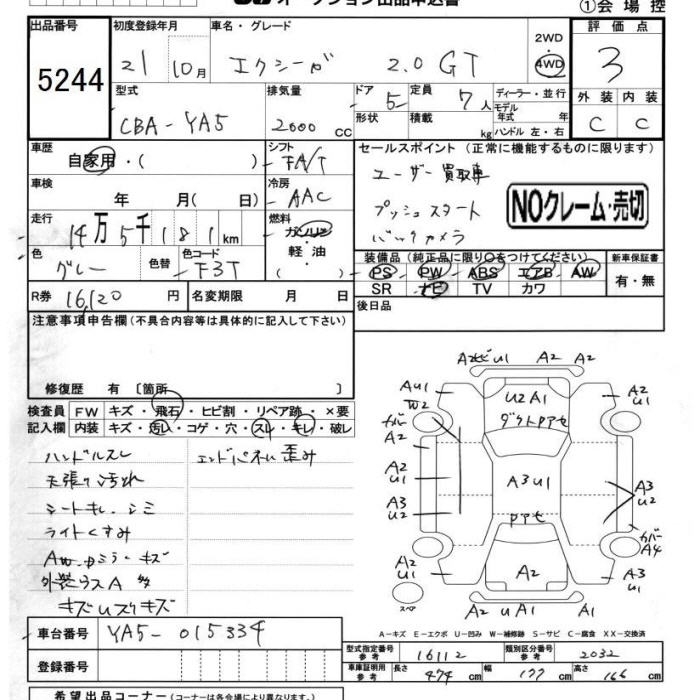 オークション出品申込書
①会場控
出品番号 初度登録年月 車名・グレード 2WD 4WD 評価点
5244 21 10月 エクシーガ 2.0 GT 3
型式 排気量 ドア 定員 ディーラー・並行 外装 内装
CBA-YA5 2000 CC 5 7人 モデル年式 年 C C
形状 積載 kg ハンドル 左・右
車歴 自家用・( ) シフト FA/T セールスポイント (正常に機能するものに限ります)
車検 年 月(日) 冷房 AAC ユーザー買取車
走行 14万5千181km 燃料 ガソリン 軽・油 プッシュスタート
NOクレーム・売切
バックカメラ
色 グレー 色替 色コード F3T
装備品 (純正品に限り○をつけてください) 新車保証書
PS PW ABS エアB AW 有・無
SR ナビ TV カワ
R券 16,120円 名変期限 月 日 後日品
注意事項申告欄(不具合内容等は具体的に記入して下さい)
修復歴 有 〔箇所 〕
検査員 FW キズ・飛石・ヒビ割・リペア跡・×要
記入欄 内装 キズ・汚れ・コゲ・穴・スレ・キレ・破レ
ハンドルスレ エンドパネル歪み
天張り汚れ
シートキレ、シミ
ライトくすみ
AW.ドミラーキズ
外装ラスA 多
キズUスリキズ
A2ビU1 A2 A2
AU1 U2A1 A2
W2 U1
カバー ダクトPアセ
A2
A2 A3
U1 A3U1 U2
A3
U2 Pアセ カバー
A4
A2 A3
U1 A2 U1
スペア
A2 UA1 A1
A-キズ E-エクボ U-凹み W-補修跡 S-サビ C-腐食 XX-交換済
車台番号 YA5-015334
型式指定番号 参考 16112 類別区分番号 参考 2032
登録番号
車庫証明用 参考 長さ 474cm 幅 177cm 高さ 166cm
希望出品コーナー(コーナーは各会場により異なります)